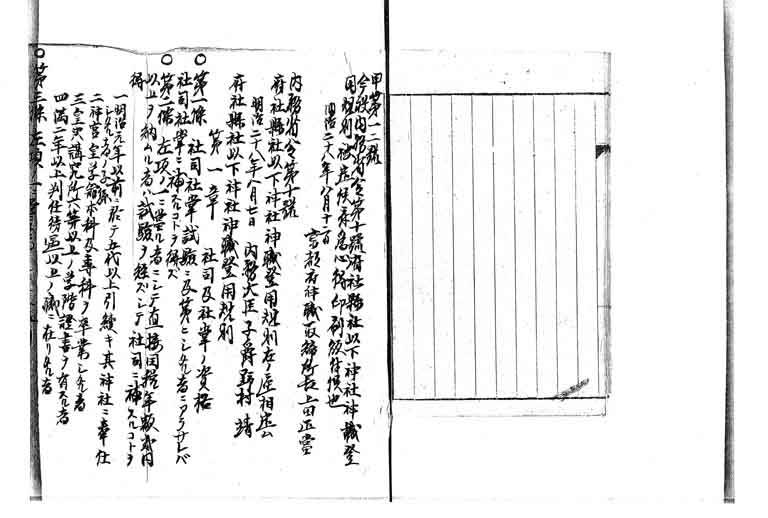 甲第一二號
今般内務省令第十號府社縣社以下神社神職登
用規則被定候条為心得印刷及送付候也
明治二十八年八月十二日
京都府神職取締所長上田正當
内務省令第十號
府社縣社以下神社神職登用規則左ノ通相定ム
明治二十八年八月七日 内務大臣子爵野村靖
府社縣社以下神社神職登用規則
第一章 社司及社掌ノ資格
○第一條 社司社掌試驗ニ及第シタル者ニアラサレバ
社司社掌ニ補スルコトヲ得ズ
○第二條 左項ノ一ニ當ル者ニシテ直接國税年額貳円
以上ヲ納ムル者ハ試驗ヲ経ズシテ社司ニ補スルコトヲ
得
一明治元年以前ニ於テ五代以上引續キ其神社ニ奉仕
シタル者ノ子孫
二神宮皇學館本科及專科ヲ卒業シタル者
三皇典講究所六等以上ノ學階證書ヲ有スル者
四滿二年以上判任待遇以上ノ職ニ在リタル者
○第三條 左項ノ一ニ當